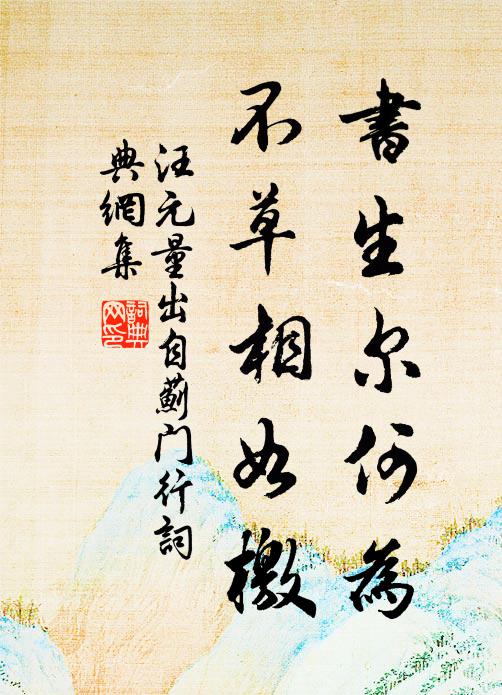 書生尔何為
不草相如檄
汪元量出自薊门行詞
典網集
詞典
网印